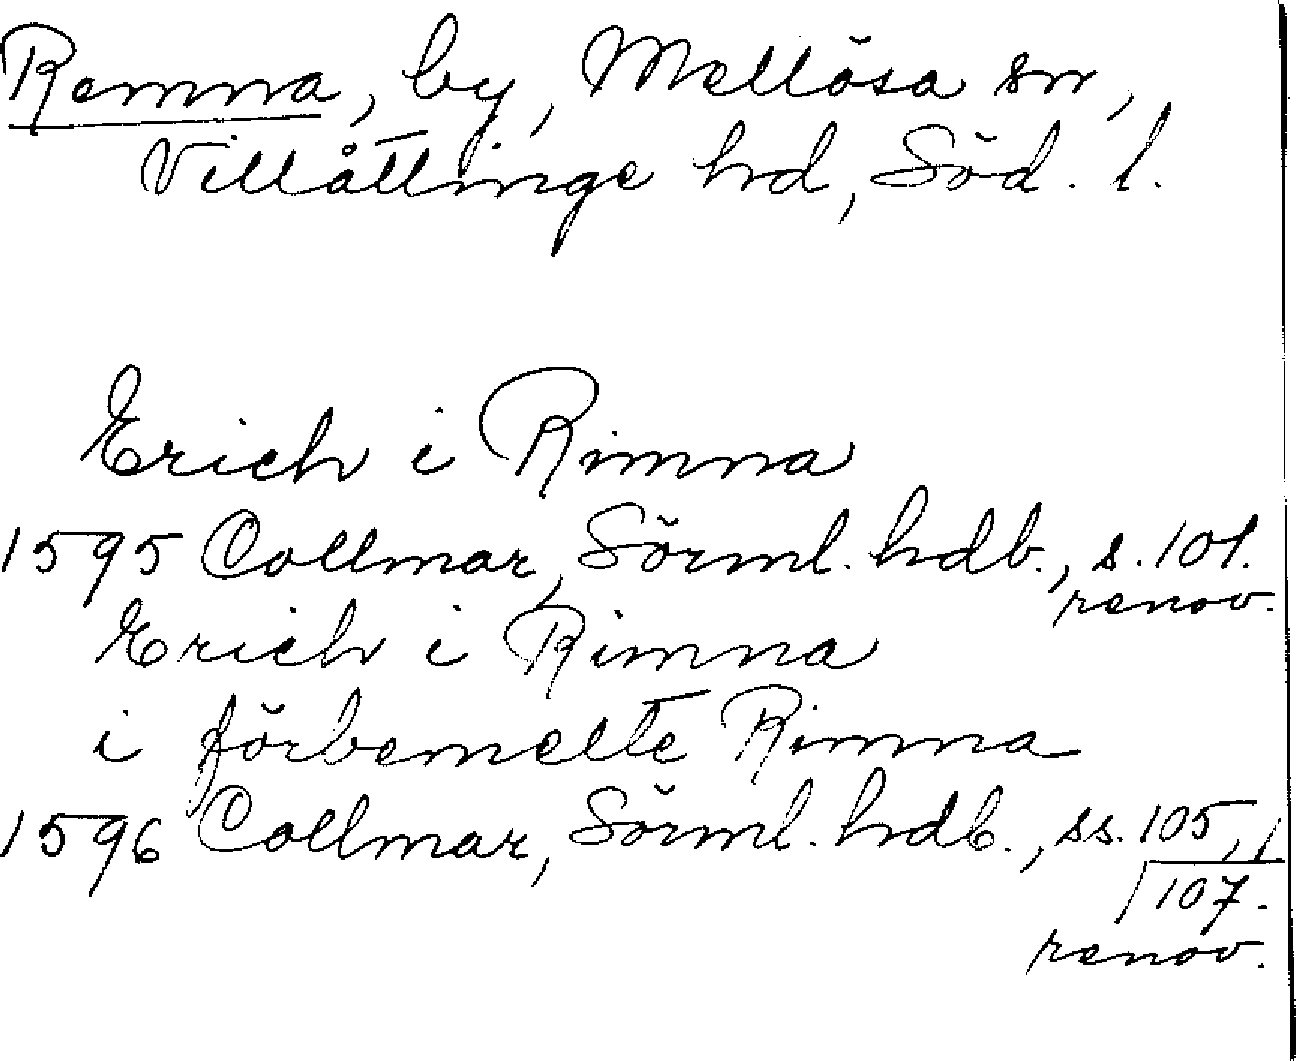 Remna, by, Mellösa sn,
Villåttinge hd, Söd. l.
Erich i Rimna
1595 Collmar, Sörml. hdb., s. 101.
renov.
Erich i Rimna
i förbemelte Rimna
1596 Collmar, Sörml. hdb., ss. 105,
107.
renov.